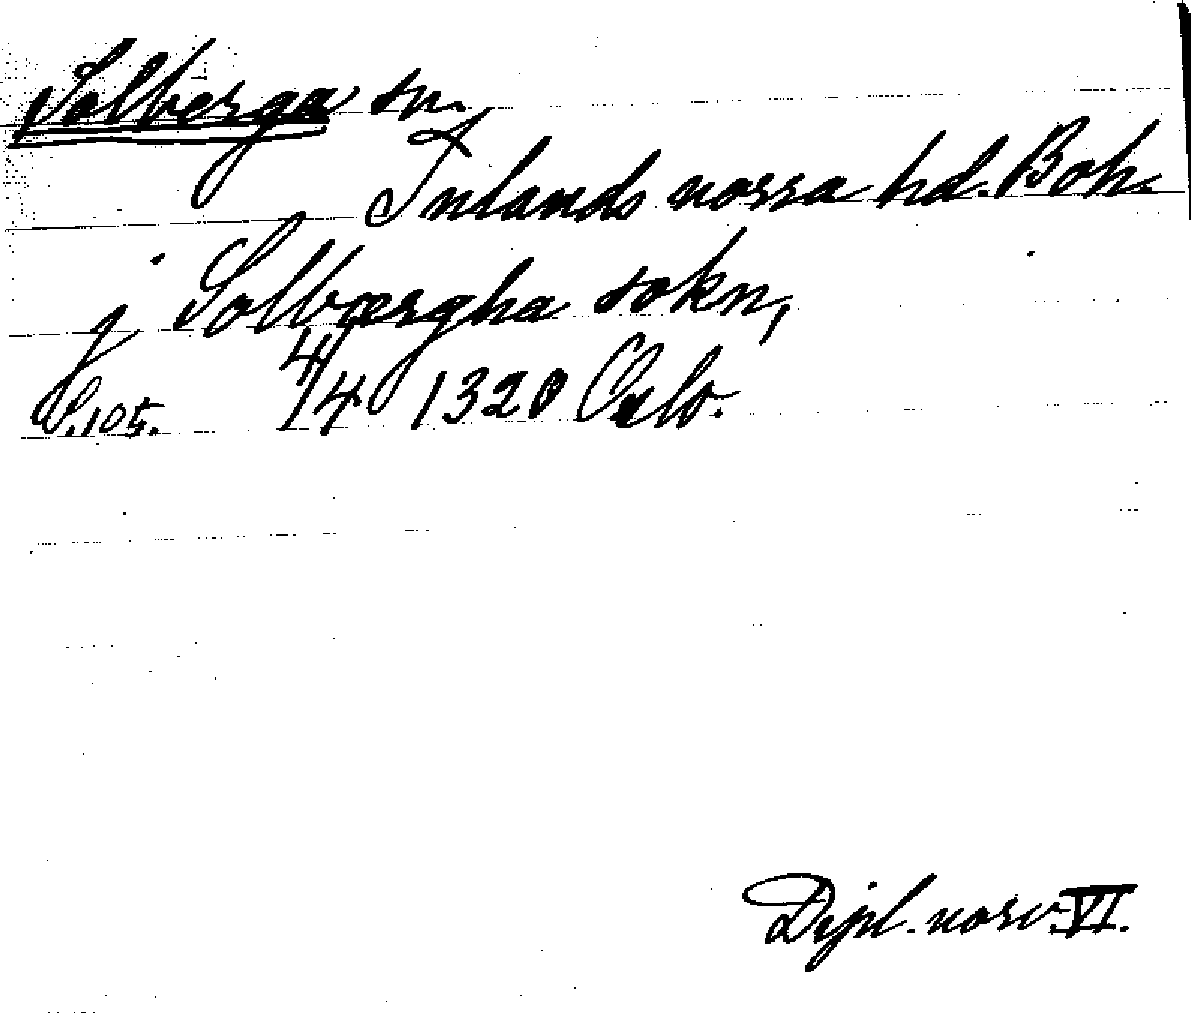 Solberga sn.
Inlands norra hd. Boh.
j Solbærgha sokn,
S. 105. 4/4 1320 Oslo.
Dipl. norv. VI.